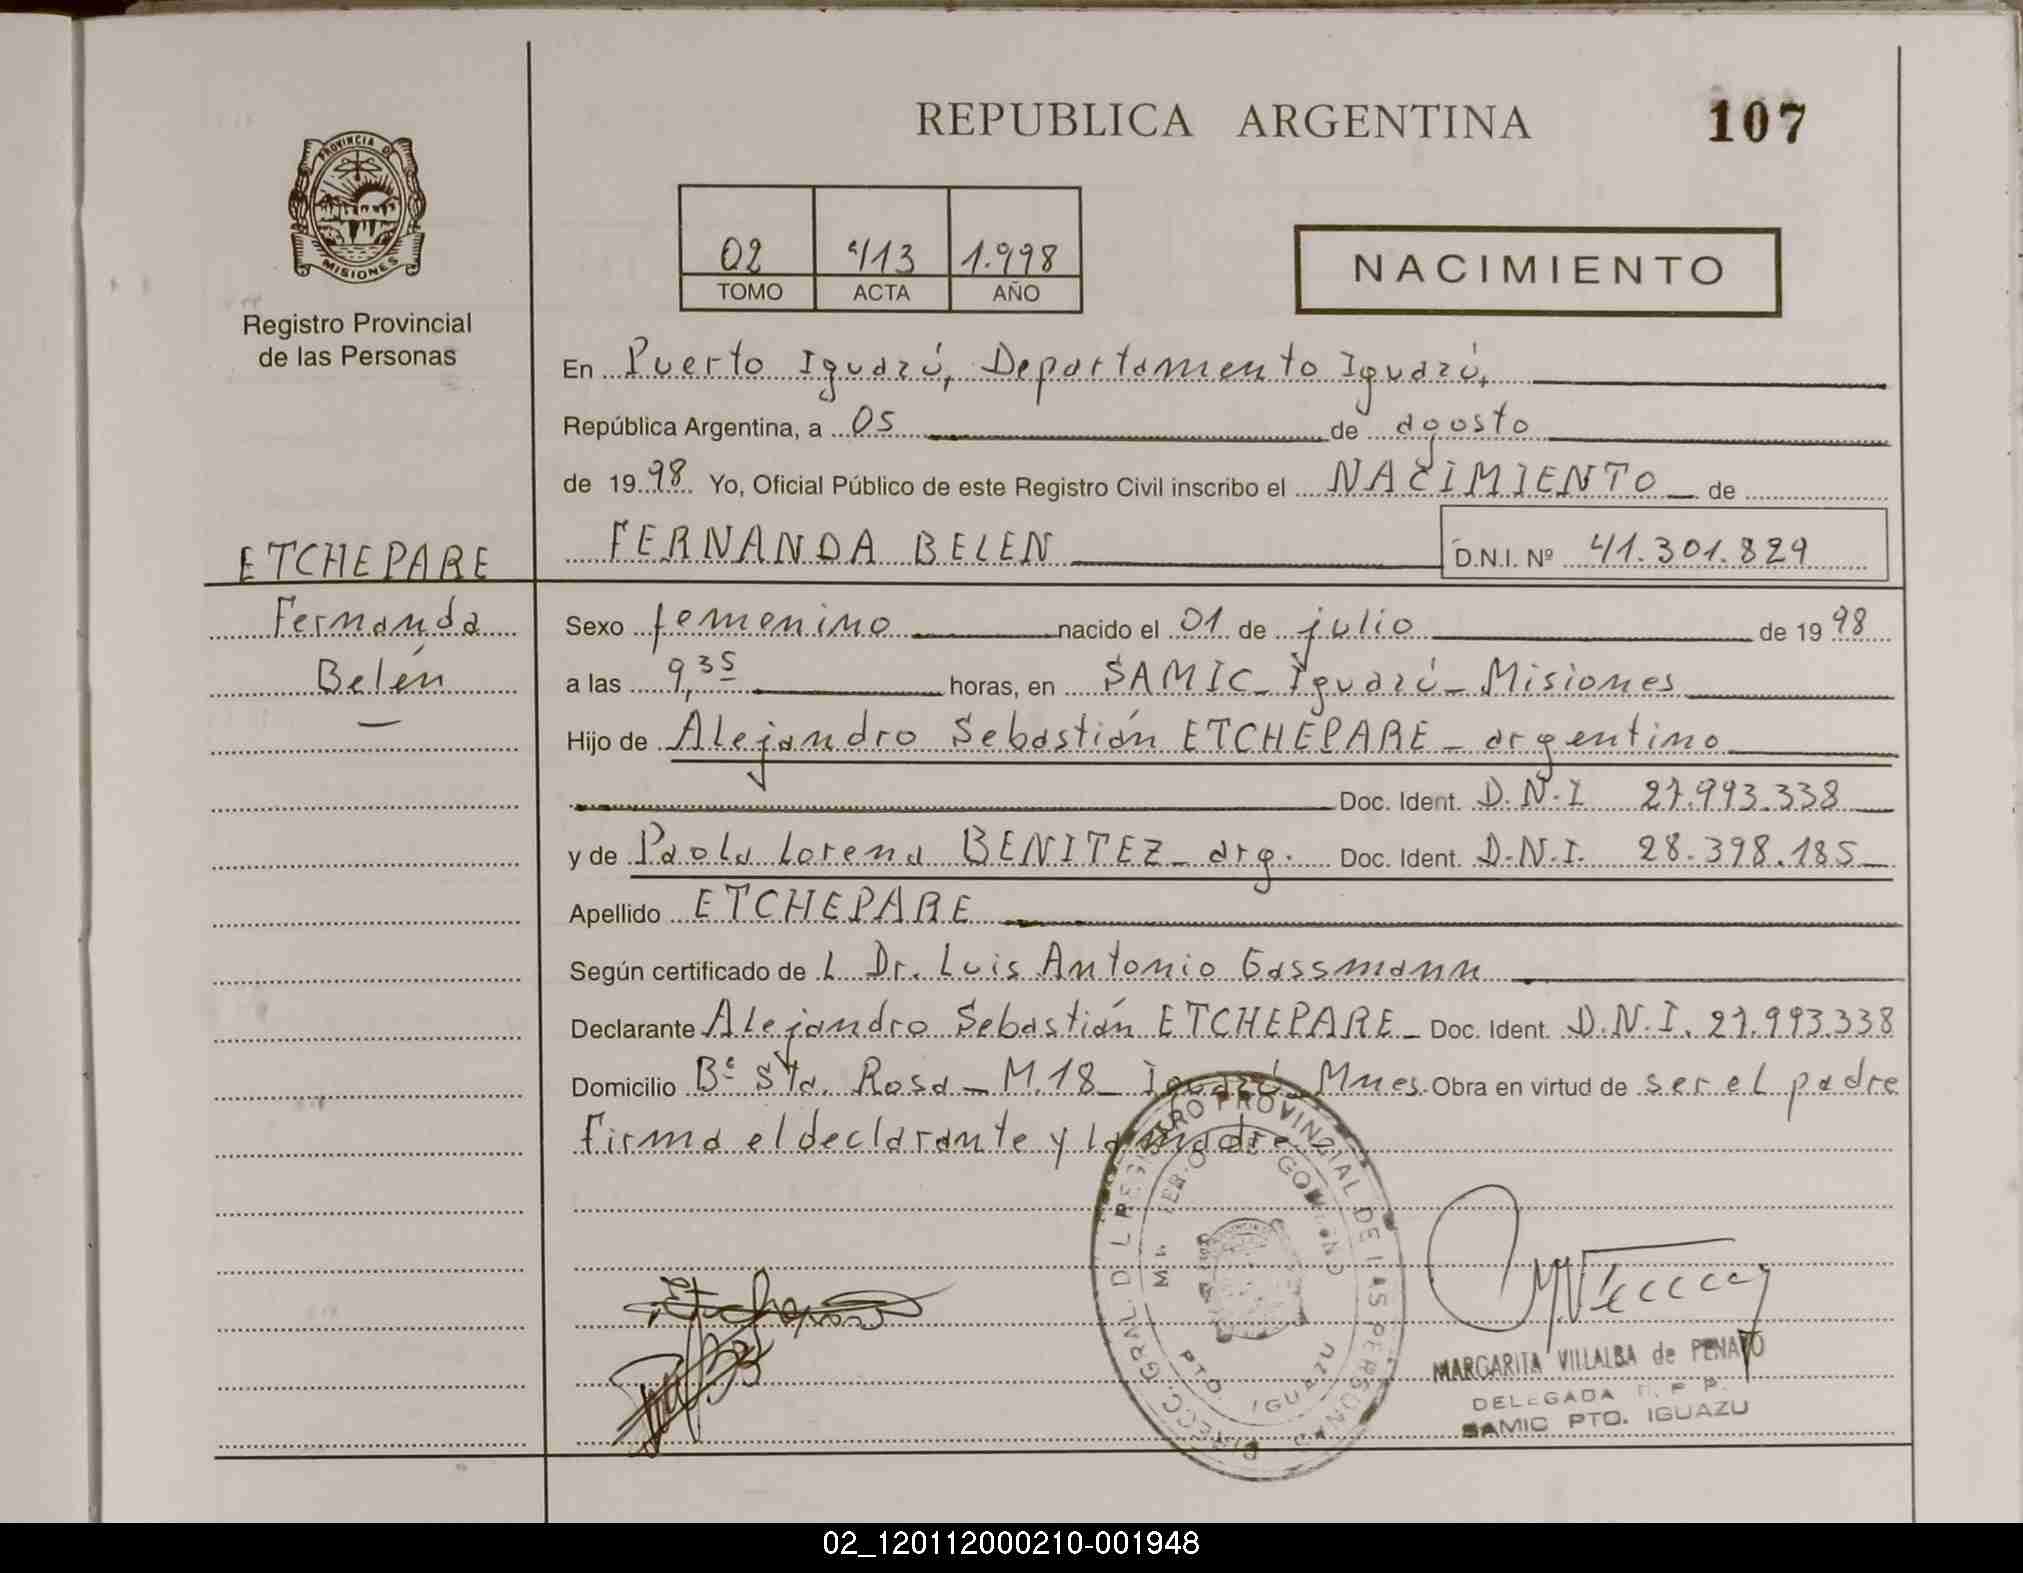 REPUBLICA ARGENTINA
107
PROVINCIA DE
MISIONES
Registro Provincial
de las Personas
02 413 1.998
TOMO ACTA AÑO
NACIMIENTO
En Puerto Iguazú, Departamento Iguazú,
República Argentina, a 05 de agosto
de 1998 Yo, Oficial Público de este Registro Civil inscribo el NACIMIENTO de
FERNANDA BELEN D.N.I. Nº 41.301.829
ETCHEPARE
Fernanda
Belén
Sexo femenino nacido el 01 de julio de 1998
a las 9,35 horas, en SAMIC - Iguazú - Misiones
Hijo de Alejandro Sebastián ETCHEPARE - argentino
Doc. Ident. D.N.I 27.993.338
y de Paola Lorena BENITEZ - arg. Doc. Ident. D.N.I. 28.398.185
Apellido ETCHEPARE
Según certificado de L Dr. Luis Antonio Gassmann
Declarante Alejandro Sebastián ETCHEPARE - Doc. Ident. D.N.I. 27.993.338
Domicilio Bº Sta. Rosa - M.18 - Iguazú Mnes. Obra en virtud de ser el padre
Firma el declarante y la madre
DIRECC. GRAL. DEL REGISTRO PROVINCIAL DE LAS PERSONAS
PTO. IGUAZU
MARGARITA VILLALBA de PENAYO
DELEGADA R. P. P.
SAMIC PTO. IGUAZU
02_120112000210-001948